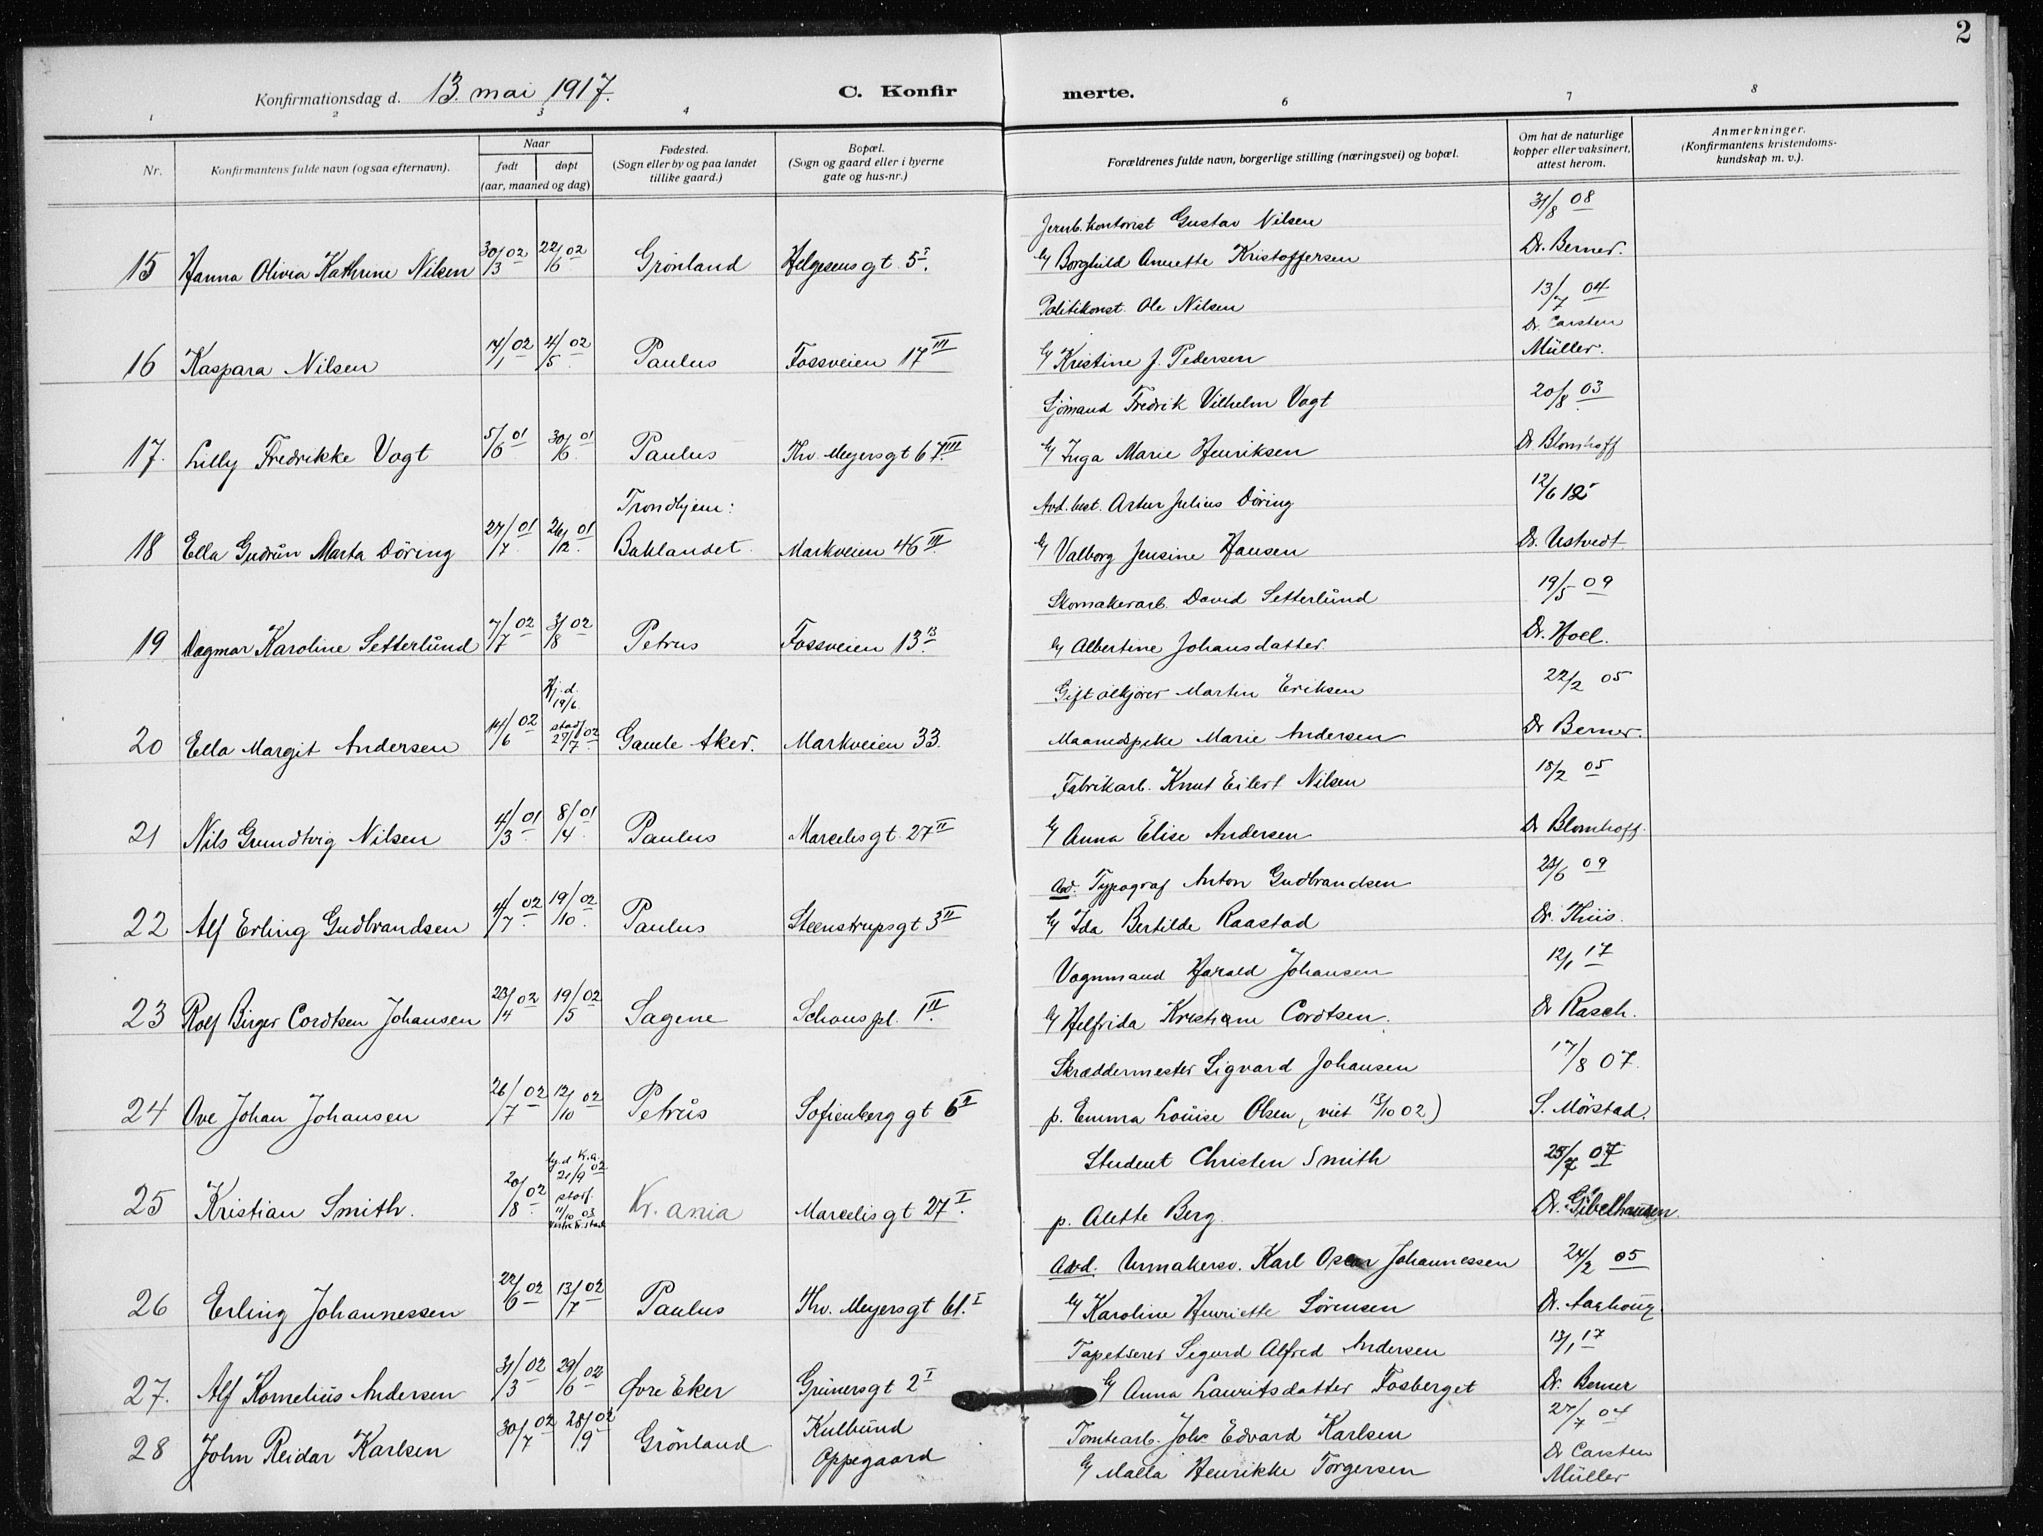 2
Konfirmationsdag d. 13. mai 1917.
C. Konfirmerte.
1 2 3 4 5 6 7 8
Nr. Konfirmantens fulde navn (ogsaa efternavn). Naar født døpt (aar, maaned og dag) Fødested. (Sogn eller by og paa landet tillike gaard.) Bopæl. (Sogn og gaard eller i byerne gate og hus-nr.) Forældrenes fulde navn, borgerlige stilling (næringsvei) og bopæl. Om hat de naturlige kopper eller vaksinert, attest herom. Anmerkninger. (Konfirmantens kristendoms-kundskap m. v.).
Jernb. kontorist Gustav Nilsen 31/8 08
15 Hanna Olivia Kathrine Nilsen 30/3 02 22/6 02 Grönland Helgesens gt 5 I. Eg Borghild Annette Kristoffersen Dr. Berner.
Politikonst. Ole Nilsen 13/7 04
16 Kaspara Nilsen 14/1 02 4/5 02 Paulus Fossveien 17 III Eg Kristine J. Pedersen Dr. Carsten Müller.
Sjömand Fredrik Vilhelm Vogt 20/8 03
17. Lilly Fredrikke Vogt 5/6 01 30/6 01 Paulus Thv. Meyersgt 67 III Eg Inga Marie Henriksen Dr. Blomhoff
Trondhjem: Avd. best. Artur Julius Döring 12/6 12
18 Ella Gudrun Marta Döring 27/7 01 26/12 01 Baklandet Markveien 46 III Eg Valborg Jensine Hansen Dr. Ustvedt
Skomakerarb. David Setterlund 19/5 09
19 Dagmar Karoline Setterlund 7/7 02 3/8 02 Petrus Fossveien 13 B. Eg Albertine Johansdatter Dr. Hoel.
Hj. d. 19/6 Gift ölkjörer Martin Eriksen 22/2 05
20 Ella Margit Andersen 14/6 02 stadf. 27/7 02 Gamle Aker. Markveien 33. Maanedspike Marie Andersen Dr Berner.
Fabrikarb. Knut Eilert Nilsen 18/2 05
21 Nils Grundtvig Nilsen 4/3 01 8/4 01 Paulus Marselisgt 27 II Eg Anna Elise Andersen Dr Blomhoff.
Avd. Typograf Anton Gudbrandsen 09
22 Alf Erling Gudbrandsen 4/7 02 19/10 02 Paulus Steenstrupsgt 3 II Eg Ida Bertilde Raastad Dr. Thiis.
Vognmand Harald Johansen 12/1 17
23 Rolf Birger Cordtsen Johansen 23/4 02 19/5 02 Sagene Schous pl. 1 III. Eg Helfrida Kristiane Cordtsen. Dr Rasch.
Skræddermester Sigvard Johansen 17/8 07.
24 Ove Johan Johansen 26/7 02 12/10 02 Petrus Sofienberg gt 6 I p. Emma Louise Olsen, (viet 13/10 02) S. Mörstad.
hj. d. Kr.a. 21/9 02 Student Christen Smith 25/7 07
25 Kristian Smith. 20/8 02 stadf. 11/10 03 Kr.ania Marselisgt 27 I. p. Alette Berg. Dr. Gibelhausen.
Avd. Urmakersv. Karl Oscar Johannessen 24/2 05
26 Erling Johannessen 22/6 02 13/7 02 Paulus Thv. Meyersgt 61. I Eg Karoline Henriette Sörensen Dr. Aarhoug
Tapetserer Sigurd Alfred Andersen 13/1 17
27. Alf Kornelius Andersen 31/3 02 29/6 02 Øvre Eker Grünersgt 2 I Eg Anna Lauritsdatter Fosberget Dr. Berner
Kulbund Tomtearb. Joh. Edvard Karlsen 27/7 04
28 John Reidar Karlsen 30/7 02 28/9 02 Grönland Oppegaard Eg Malla Henrikke Torgersen Dr Carsten Müller